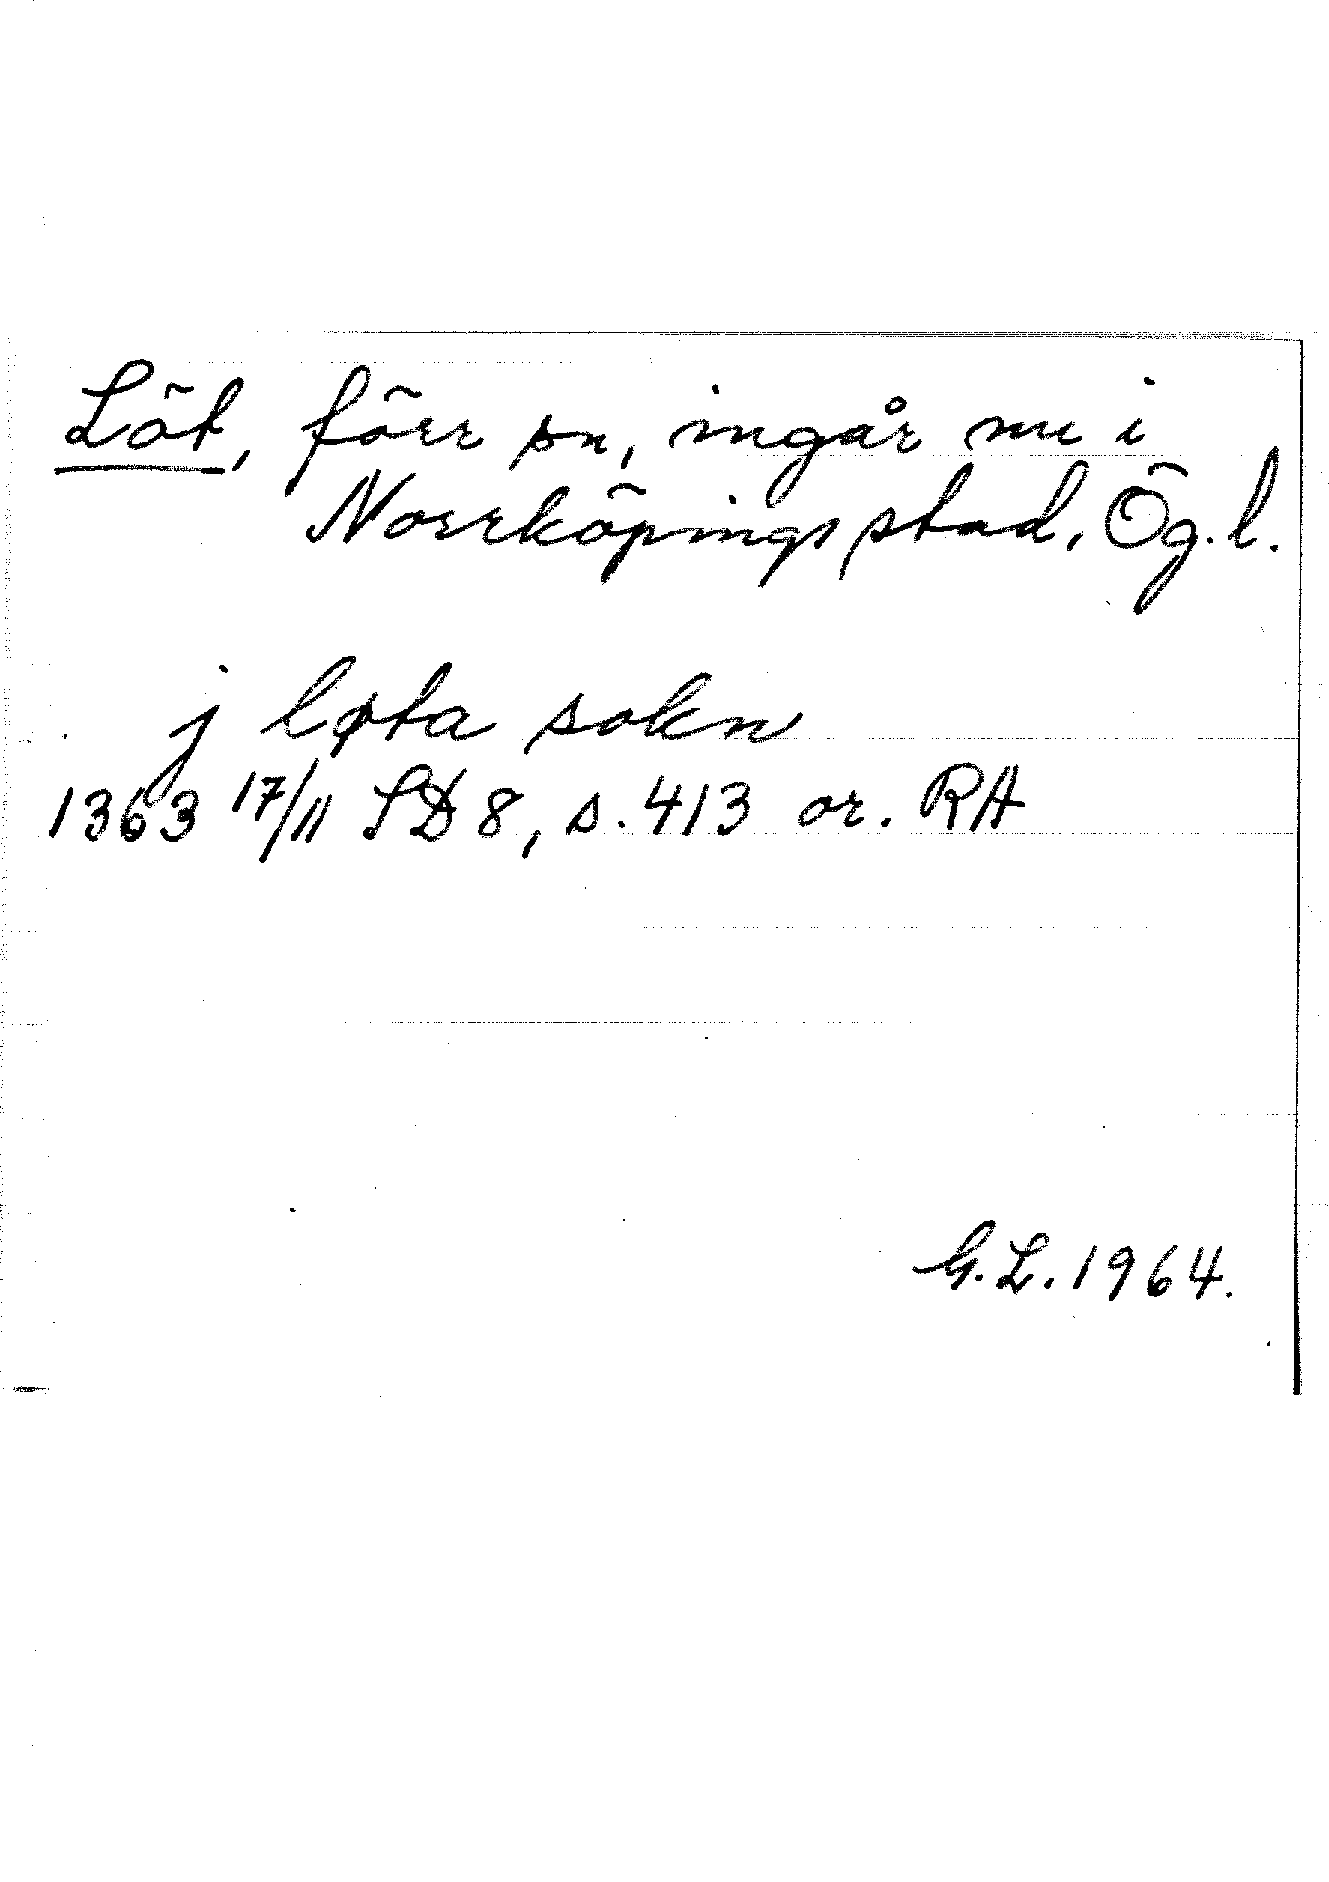 Löt, förr sn, ingår nu i
Norrköpings stad, Ög. l.
j løta sokn
1363 17/11 SD 8, s. 413 or. RA
G. L. 1964.